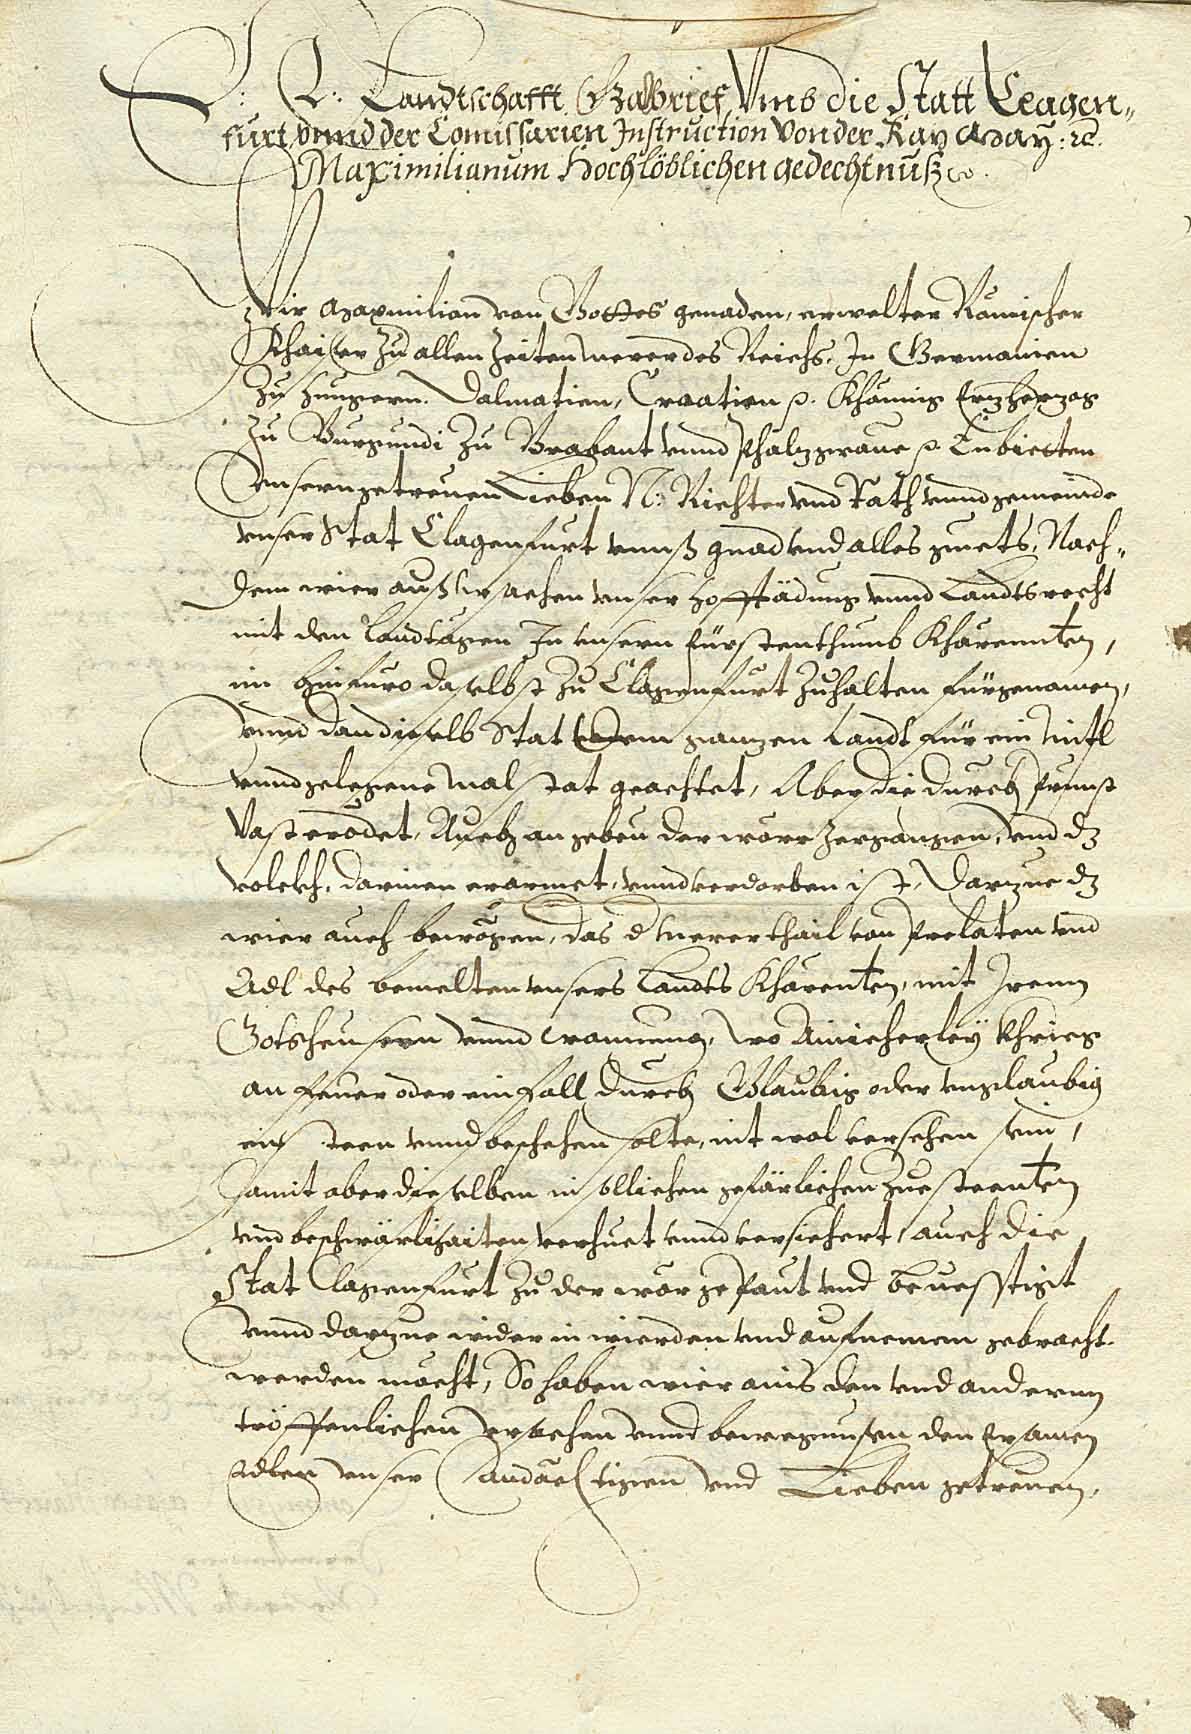 E: L: Landtschafft Gabbrief Vmb die Statt Clagen„
furt vnnd der Comissarien Instruction Von der Kay May: ꝛc.
Maximilianum Hochlöblichen gedechtnuß
Wir Maxmilian von Gottes genaden, erwelter Römischer
Khaiser zu allen Zeiten merer des Reichs, In Germanien
zu Hungern. Dalmatien, Croatien ꝛc. Khönig Ertzhertzog
zu Burgundi zu Brabant vnnd Phaltzgraue ꝛc Enbietten
vnsern getreuen Lieben N: Richter vnd Rath vnnd gemeinde
vnser Stat Clagenfurt vnnß gnad vnd alles guets, Nach„
dem wier auß vrsachen vnser Hofftädung vnnd Landtsrecht
mit den Landtagen In vnsern Fürstenthumb Khärennten,
nu hinfuro daselbst zu Clagenfurt zuhalten fürgenomen,
vnnd dan dieselb Stat dem gantzen Landt für ein mitl
vnnd gelegene malstat geachtet, Aber die durch Prunst
Vast erödet, Auch an gebeu der wöre zergangen, vnd dz
volckh, darinen erarmet, vnnd verdorben ist, Dartzue dz
wier auch bewögen, das d merer thail von Prelaten vnd
Adl des bemelten vnsers Landts Khärenten, mit Irenn
Gotsheusern vnnd wonnung, wo Ainicherley khrieg
an feuer oder einfall durch Glaubig oder vnglaubig
ein steen vnnd beschehen solte, nit wol versehen sein,
Damit aber dieselben in sollichen gefärlichen Zuesteenten
vnd beschwärlihaiten verhuet vnnd versichert, auch die
Stat Clagenfurt zu der wör gepaut vnd beuesstigt
vnnd dartzue wider in wierden vnd aufnemen gebracht
werden möcht, So haben wier aus den vnd andernn
tröffenlichen vrsachen vnnd bewegnussen den Ersamen
Edlen vnser andächtigen vnd Lieben getreuen,